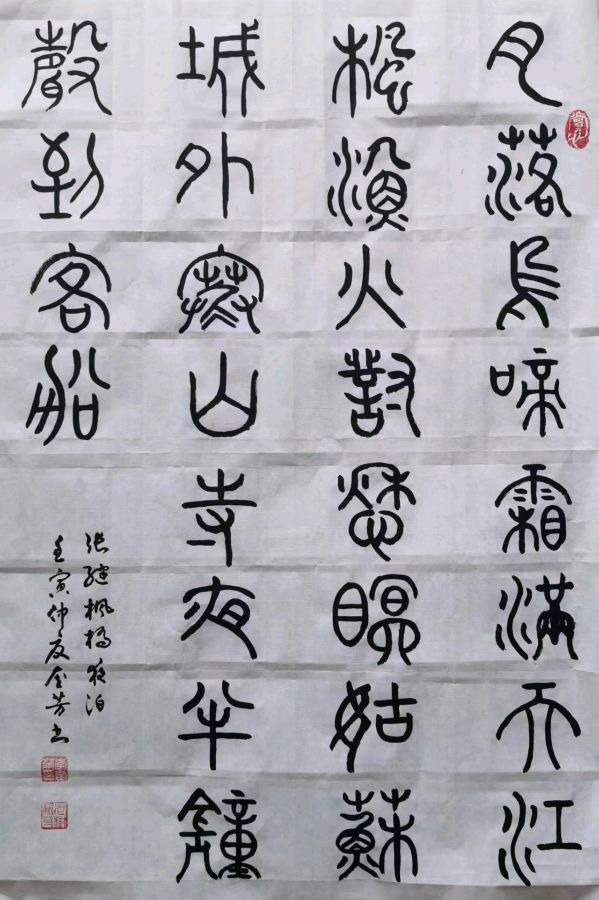 月落烏啼霜滿天江
楓漁火對愁瞑姑蘇
城外寒山寺夜半鐘
聲到客船
張繼楓橋夜泊
壬寅仲夏金芳书